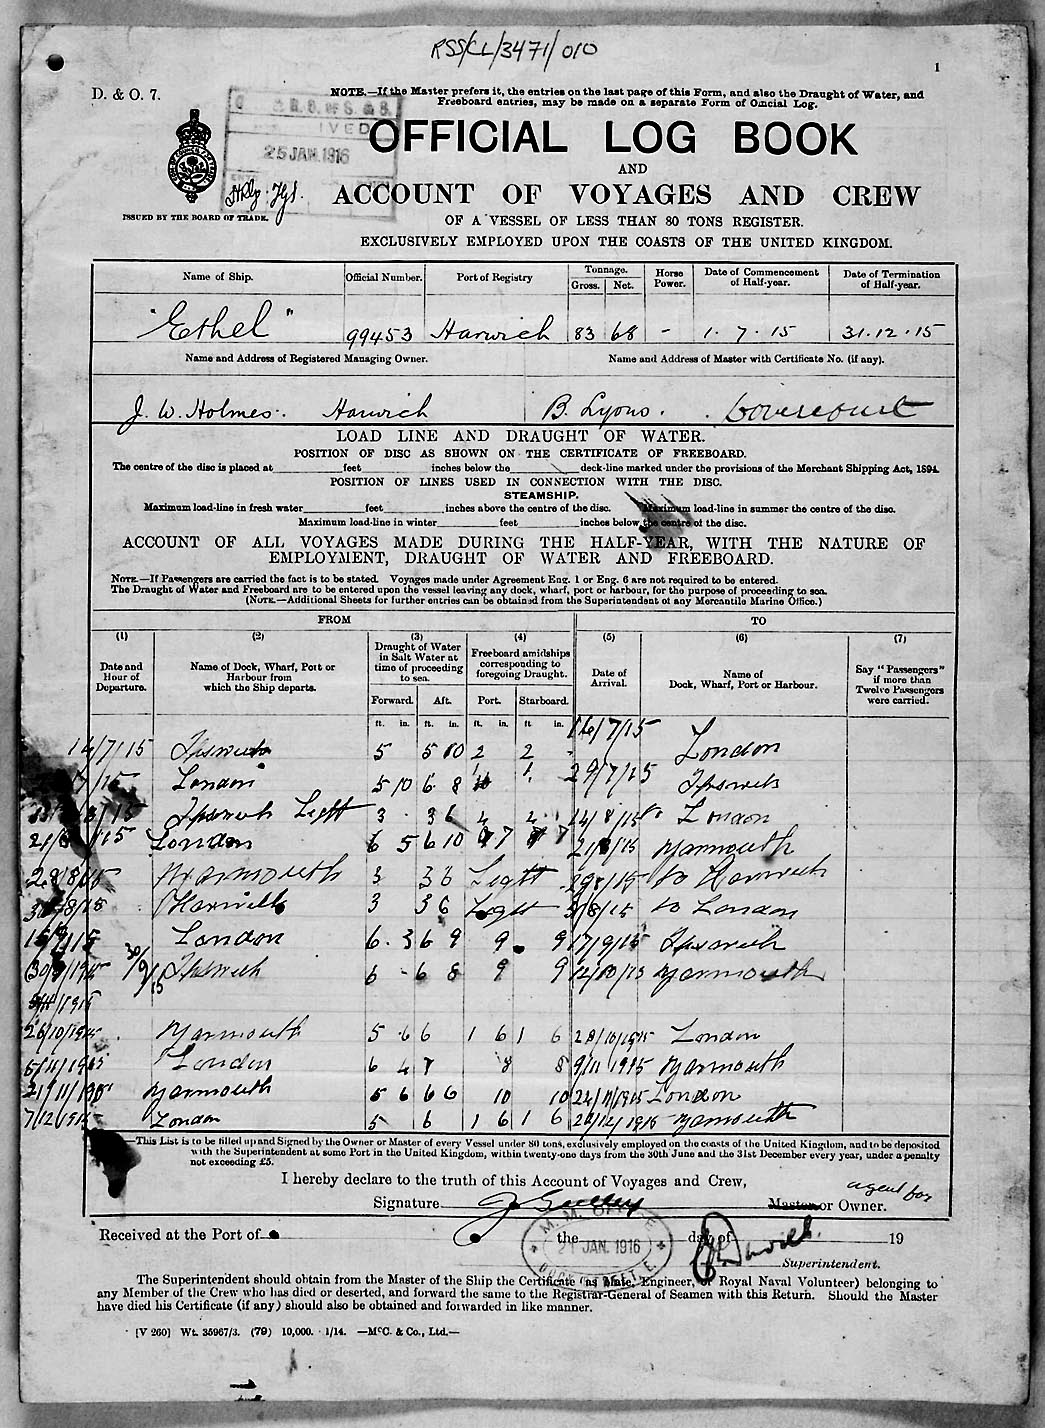 RSS/CL/3471/010
1
D. & O. 7.
NOTE.—If the Master prefers it, the entries on the last page of this Form, and also the Draught of Water, and
Freeboard entries, may be made on a separate Form of Official Log.
25 JAN. 1916
OFFICIAL LOG BOOK
AND
ACCOUNT OF VOYAGES AND CREW
ISSUED BY THE BOARD OF TRADE.
OF A VESSEL OF LESS THAN 80 TONS REGISTER.
EXCLUSIVELY EMPLOYED UPON THE COASTS OF THE UNITED KINGDOM.
Name of Ship. Official Number. Port of Registry Tonnage. Gross. Net. Horse Power. Date of Commencement of Half-year. Date of Termination of Half-year.
"Ethel" 99453 Harwich 83 68 - 1.7.15 31.12.15
Name and Address of Registered Managing Owner. Name and Address of Master with Certificate No. (if any).
J. W. Holmes. Harwich B. Lyons. Dovercourt
LOAD LINE AND DRAUGHT OF WATER.
POSITION OF DISC AS SHOWN ON THE CERTIFICATE OF FREEBOARD.
The centre of the disc is placed at feet inches below the deck-line marked under the provisions of the Merchant Shipping Act, 1894.
POSITION OF LINES USED IN CONNECTION WITH THE DISC.
STEAMSHIP.
Maximum load-line in fresh water feet inches above the centre of the disc. Maximum load-line in summer the centre of the disc.
Maximum load-line in winter feet inches below the centre of the disc.
ACCOUNT OF ALL VOYAGES MADE DURING THE HALF-YEAR, WITH THE NATURE OF
EMPLOYMENT, DRAUGHT OF WATER AND FREEBOARD.
NOTE.—If Passengers are carried the fact is to be stated. Voyages made under Agreement Eng. 1 or Eng. 6 are not required to be entered.
The Draught of Water and Freeboard are to be entered upon the vessel leaving any dock, wharf, port or harbour, for the purpose of proceeding to sea.
(NOTE.—Additional Sheets for further entries can be obtained from the Superintendent of any Mercantile Marine Office.)
FROM TO
(1) (2) (3) (4) (5) (6) (7)
Date and Hour of Departure. Name of Dock, Wharf, Port or Harbour from which the Ship departs. Draught of Water in Salt Water at time of proceeding to sea. Freeboard amidships corresponding to foregoing Draught. Date of Arrival. Name of Dock, Wharf, Port or Harbour. Say "Passengers" if more than Twelve Passengers were carried.
Forward. Aft. Port. Starboard.
ft. in. ft. in. ft. in. ft. in.
14/7/15 Ipswich 5 5 10 2 2 16/7/15 London
London 5 10 6 8 29/7/15 Ipswich
Ipswich Light 3 3 6 14/8/15 London
London 6 5 6 10 7 7 Yarmouth
28/8/15 Yarmouth 3 3 6 Light to Harwich
Harwich 3 3 6 Light to London
London 6 3 6 9 9 9 17/9/15 Ipswich
30/9/15 Ipswich 6 6 8 9 9 12/10/15 Yarmouth
26/10/1915 Yarmouth 5 6 6 1 6 1 6 28/10/1915 London
5/11/1915 London 6 4 7 8 8 9/11 1915 Yarmouth
21/11/1915 Yarmouth 5 6 6 6 10 10 24/11/1915 London
7/12/1915 London 5 6 1 6 1 6 Yarmouth
—This List is to be filled up and Signed by the Owner or Master of every Vessel under 80 tons, exclusively employed on the coasts of the United Kingdom, and to be deposited
with the Superintendent at some Port in the United Kingdom, within twenty-one days from the 30th June and the 31st December every year, under a penalty
not exceeding £5.
I hereby declare to the truth of this Account of Voyages and Crew,
agent for
Signature Master or Owner.
M. M. OFFICE
21 JAN. 1916
Received at the Port of the day of 19
Superintendent.
The Superintendent should obtain from the Master of the Ship the Certificate (as Mate, Engineer, or Royal Naval Volunteer) belonging to
any Member of the Crew who has died or deserted, and forward the same to the Registrar-General of Seamen with this Return. Should the Master
have died his Certificate (if any) should also be obtained and forwarded in like manner.
[V 260] Wt. 35967/3. (79) 10,000. 1/14. —McC. & Co., Ltd.—